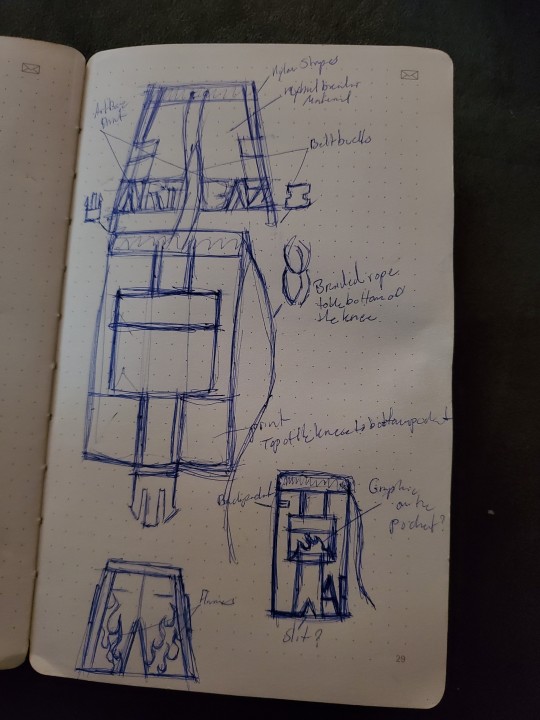 Nylon Straps
material
print
Belt buckls
Braided rope
to the bottom of
the knee
print
Top of the knee to bottom pocket
Back pocket
Graphic
on the
pocket?
Flames
Slit?
29